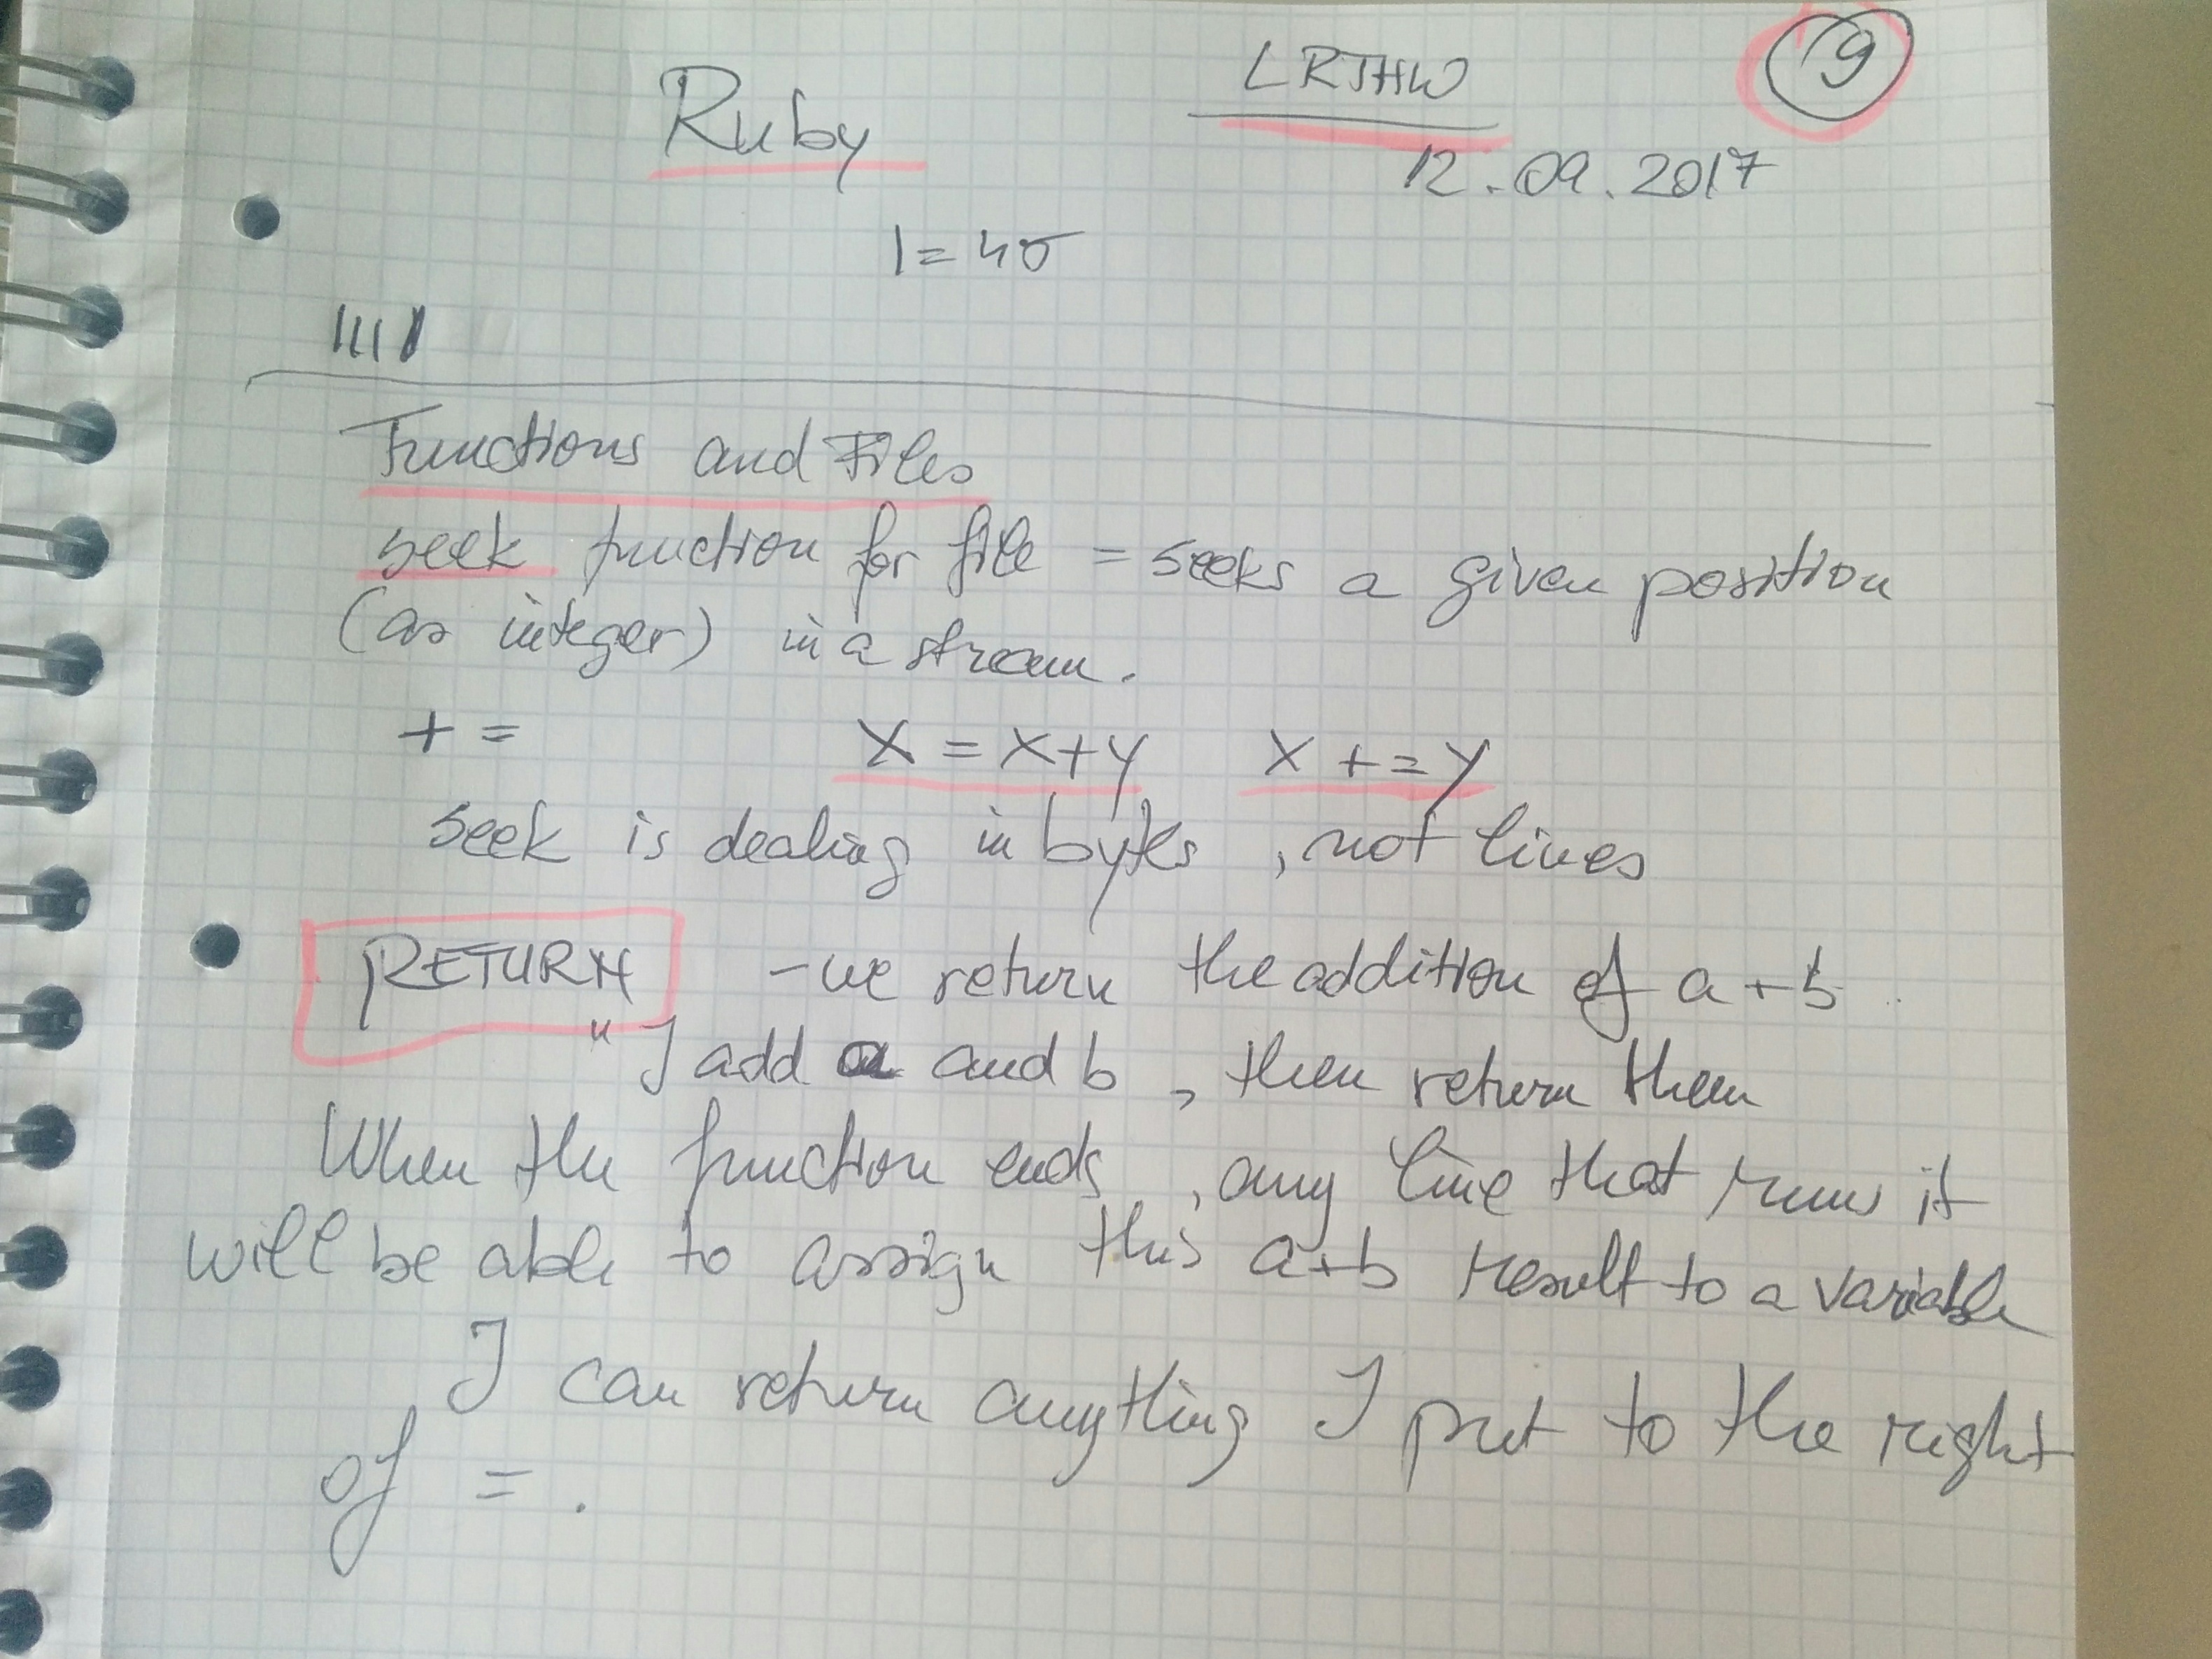 Ruby
LRTHW
9
12.09.2017
1=45
||||
Functions and Files
seek function for file = seeks a given position
(as integer) in a stream.
+= X = X+y X +=y
seek is dealing in bytes, not lines
RETURN - we return the addition of a+b
"I add a and b, then return them
When the function ends, any line that runs it
will be able to assign this a+b result to a variable
I can return anything I put to the right
of =.